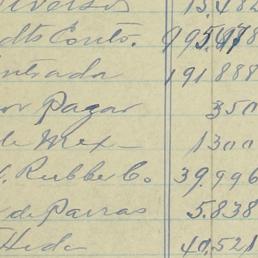 iversos 15.482
dts Conto. 995.478
ntrada 191 888
or Pagar 350
de Mex 1300
. Rubber Co. 39.996
de Parras 5.838
Hida 40.521